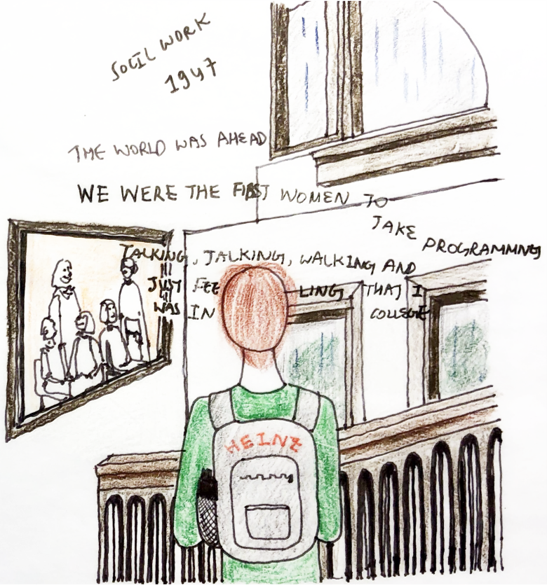 SOCIL WORK
1947
THE WORLD WAS AHEAD
WE WERE THE FIRST WOMEN TO
TAKE PROGRAMMING
TALKING, TALKING, WALKING AND
JUST FEELING, THAT I
WAS IN COLLEGE
HEINZ